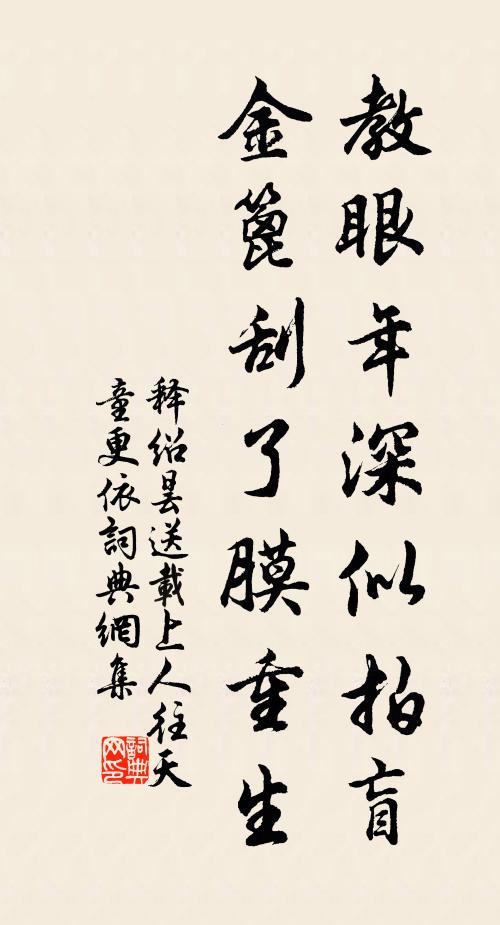 教眼年深似拍盲
金篦刮了膜重生
释绍昙送載上人往天
童更依詞典網集
詞典
网印